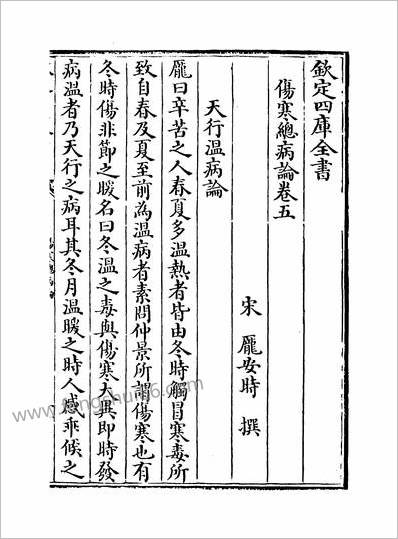 欽定四庫全書
傷寒總病論卷五
宋 龎安時 撰
天行温病論
龎曰辛苦之人春夏多温熱者皆由冬時觸冒寒毒所
致自春及夏至前為温病者素問仲景所謂傷寒也有
冬時傷非節之暖名曰冬温之毒與傷寒大異即時發
病温者乃天行之病耳其冬月温暖之時人感乖候之